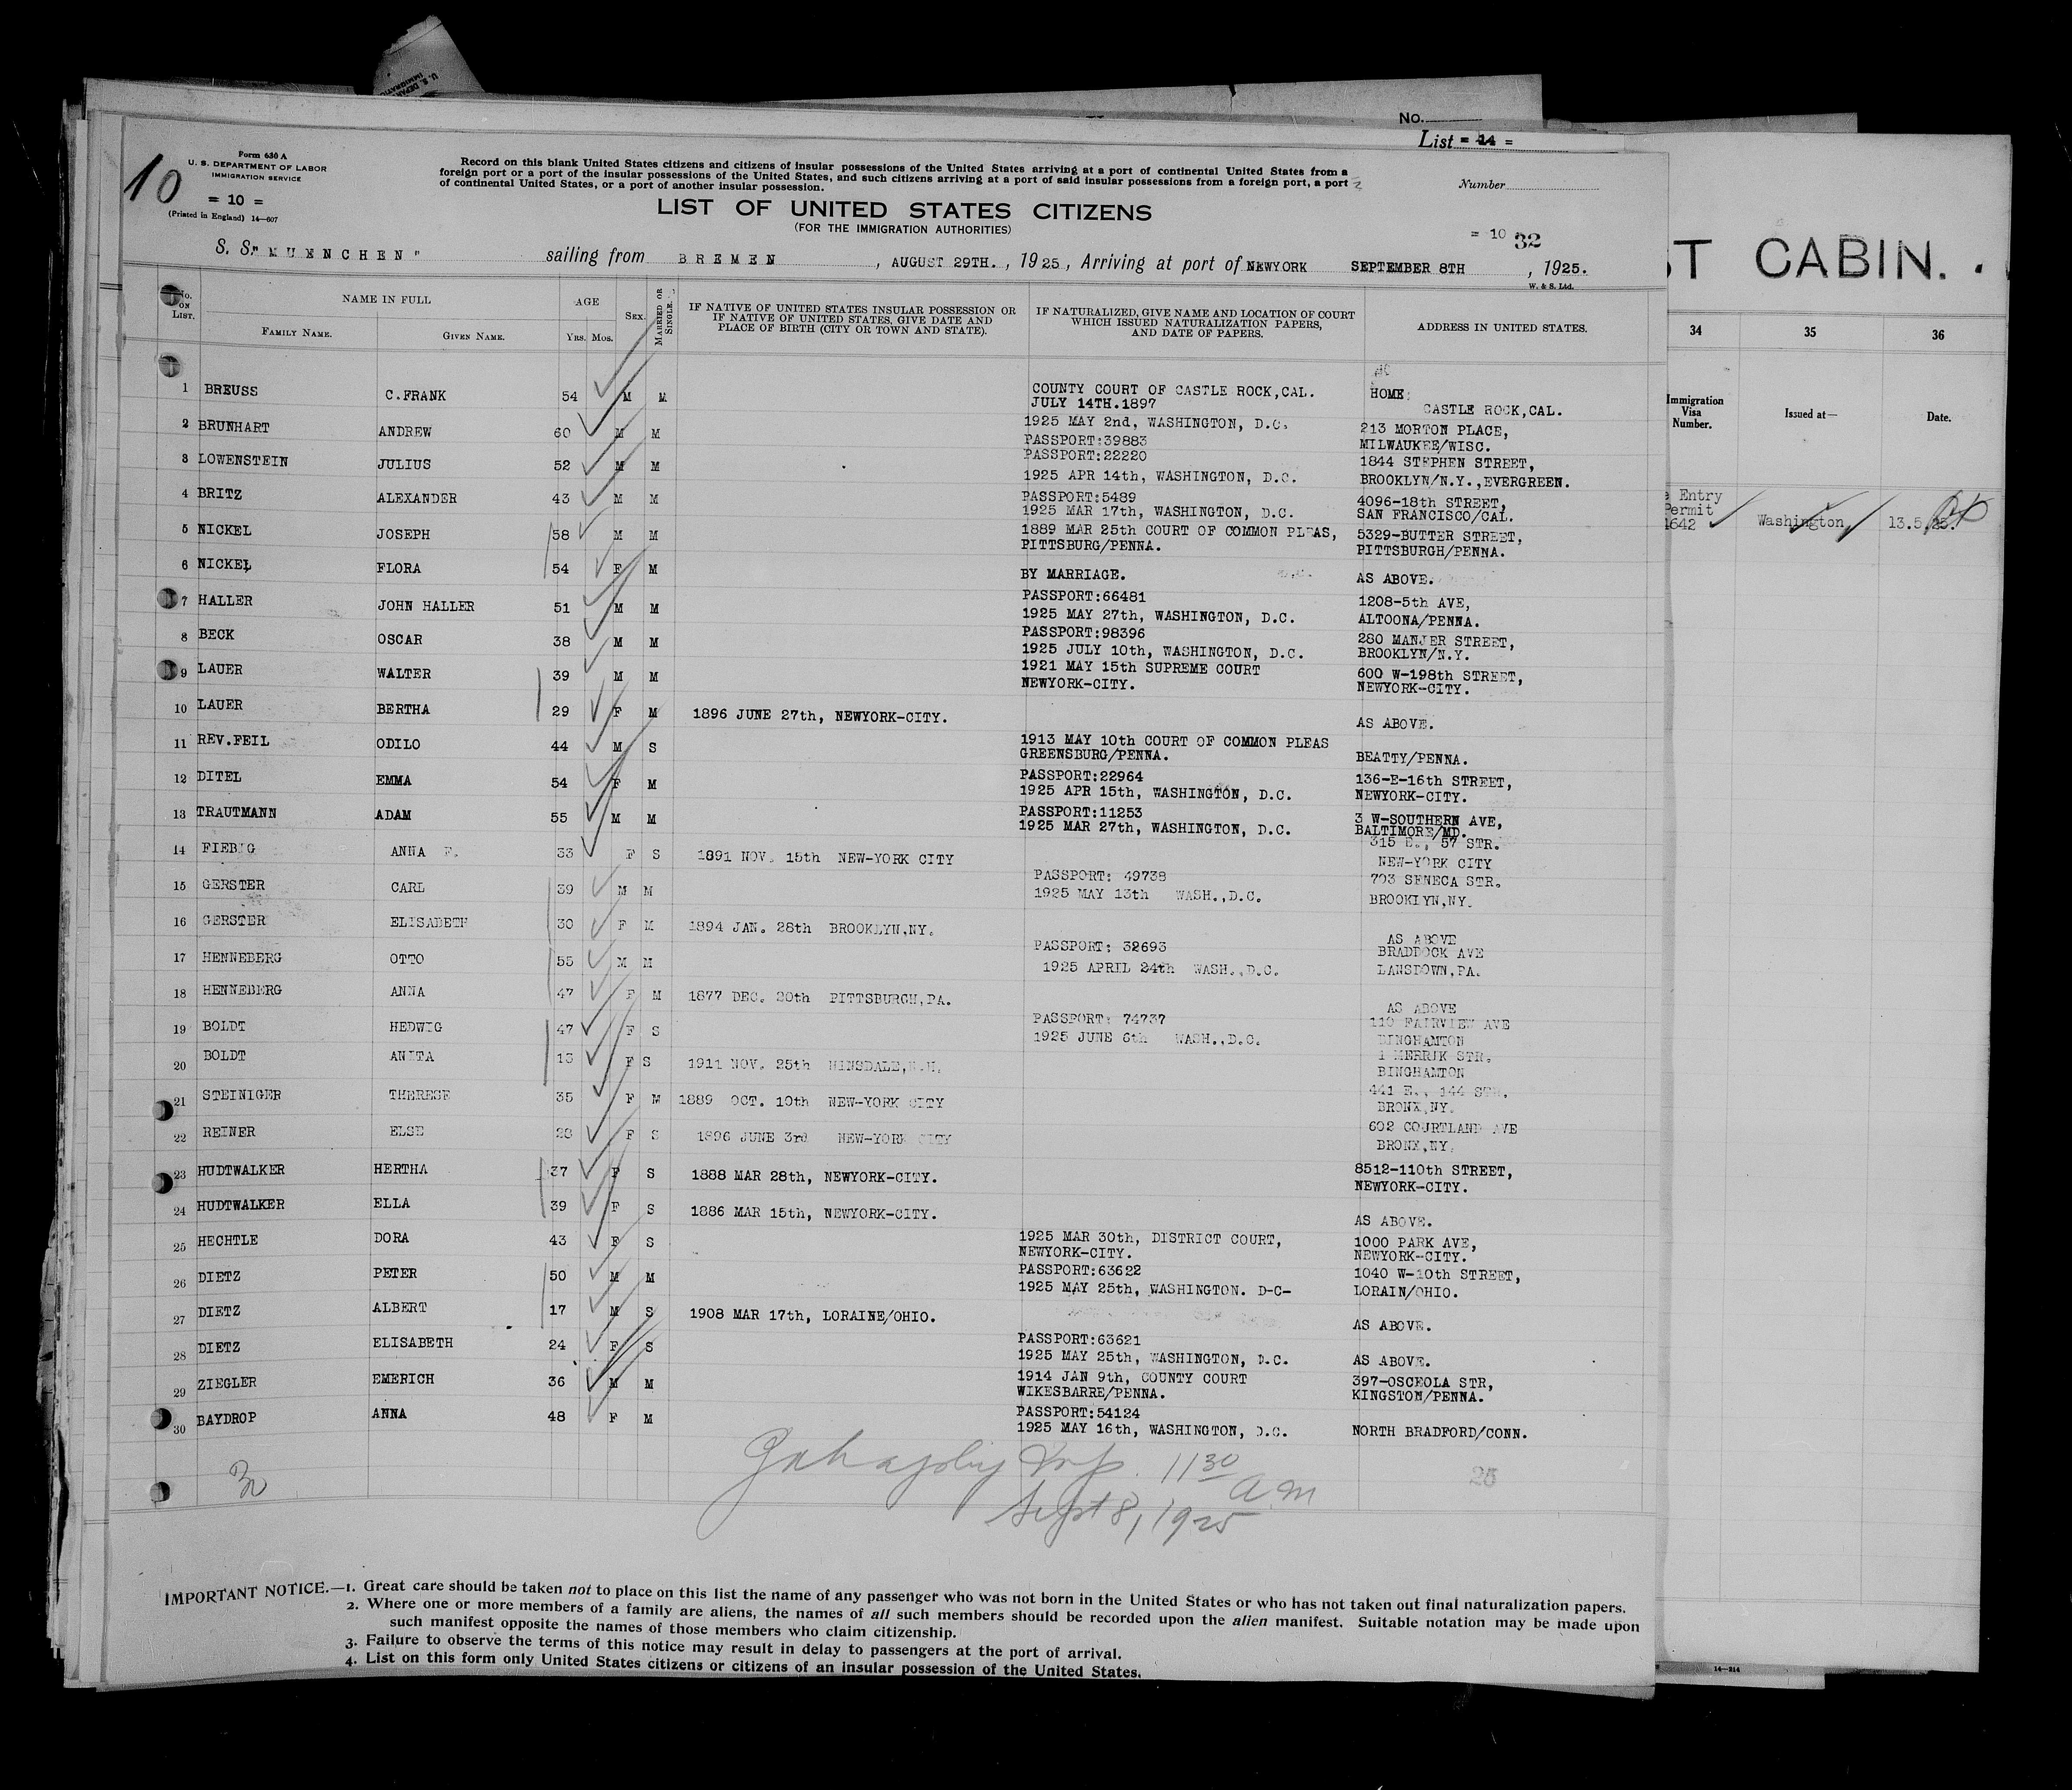 No.
List = 14 =
10
Form 630 A
U. S. DEPARTMENT OF LABOR
IMMIGRATION SERVICE
= 10 =
(Printed in England) 14—607
Record on this blank United States citizens and citizens of insular possessions of the United States arriving at a port of continental United States from a
foreign port or a port of the insular possessions of the United States, and such citizens arriving at a port of said insular possessions from a foreign port, a port
of continental United States, or a port of another insular possession.
Number
LIST OF UNITED STATES CITIZENS
(FOR THE IMMIGRATION AUTHORITIES)
= 10 32
S. S. "MUENCHEN" sailing from BREMEN, AUGUST 29TH., 1925, Arriving at port of NEWYORK SEPTEMBER 8TH, 1925.
W. & S. Ltd.
No. ON LIST. NAME IN FULL FAMILY NAME. GIVEN NAME. AGE Yrs. Mos. SEX. MARRIED OR SINGLE. IF NATIVE OF UNITED STATES INSULAR POSSESSION OR IF NATIVE OF UNITED STATES, GIVE DATE AND PLACE OF BIRTH (CITY OR TOWN AND STATE). IF NATURALIZED, GIVE NAME AND LOCATION OF COURT WHICH ISSUED NATURALIZATION PAPERS, AND DATE OF PAPERS. ADDRESS IN UNITED STATES.
1 BREUSS C.FRANK 54 M M COUNTY COURT OF CASTLE ROCK,CAL. HOME:
JULY 14TH.1897 CASTLE ROCK,CAL.
2 BRUNHART ANDREW 60 M M 1925 MAY 2nd, WASHINGTON, D.C. 213 MORTON PLACE,
PASSPORT:39883 MILWAUKEE/WISC.
3 LOWENSTEIN JULIUS 52 M M PASSPORT:22220 1844 STEPHEN STREET,
1925 APR 14th, WASHINGTON, D.C. BROOKLYN/N.Y.,EVERGREEN.
4 BRITZ ALEXANDER 43 M M PASSPORT:5489 4096-18th STREET,
1925 MAR 17th, WASHINGTON, D.C. SAN FRANCISCO/CAL.
5 NICKEL JOSEPH 58 M M 1889 MAR 25th COURT OF COMMON PLEAS, 5329-BUTTER STREET,
PITTSBURG/PENNA. PITTSBURGH/PENNA.
6 NICKEL FLORA 54 F M BY MARRIAGE. AS ABOVE.
7 HALLER JOHN HALLER 51 M M PASSPORT:66481 1208-5th AVE,
1925 MAY 27th, WASHINGTON, D.C. ALTOONA/PENNA.
8 BECK OSCAR 38 M M PASSPORT:98396 280 MANJER STREET,
1925 JULY 10th, WASHINGTON, D.C. BROOKLYN/N.Y.
9 LAUER WALTER 39 M M 1921 MAY 15th SUPREME COURT 600 W-198th STREET,
NEWYORK-CITY. NEWYORK-CITY.
10 LAUER BERTHA 29 F M 1896 JUNE 27th, NEWYORK-CITY. AS ABOVE.
11 REV.FEIL ODILO 44 M S 1913 MAY 10th COURT OF COMMON PLEAS
GREENSBURG/PENNA. BEATTY/PENNA.
12 DITEL EMMA 54 F M PASSPORT:22964 136-E-16th STREET,
1925 APR 15th, WASHINGTON, D.C. NEWYORK-CITY.
13 TRAUTMANN ADAM 55 M M PASSPORT:11253 3 W-SOUTHERN AVE,
1925 MAR 27th, WASHINGTON, D.C. BALTIMORE/MD.
14 FIEBIG ANNA F. 33 F S 1891 NOV. 15th NEW-YORK CITY 315 E., 57 STR.
NEW-YORK CITY
15 GERSTER CARL 39 M M PASSPORT: 49738 703 SENECA STR.
1925 MAY 13th WASH.,D.C. BROOKLYN,NY.
16 GERSTER ELISABETH 30 F M 1894 JAN. 28th BROOKLYN,NY. AS ABOVE
17 HENNEBERG OTTO 55 M M PASSPORT: 32693 BRADDOCK AVE
1925 APRIL 24th WASH.,D.C. LANSDOWN,PA.
18 HENNEBERG ANNA 47 F M 1877 DEC. 20th PITTSBURGH,PA. AS ABOVE
19 BOLDT HEDWIG 47 F S PASSPORT: 74737 110 FAIRVIEW AVE
1925 JUNE 6th WASH.,D.C. BINGHAMTON
20 BOLDT ANITA 13 F S 1911 NOV. 25th HINSDALE,N.H. 1 MERRIK STR.
BINGHAMTON
21 STEINIGER THERESE 35 F M 1889 OCT. 10th NEW-YORK CITY 441 E., 144 STR.
BRONX,NY.
22 REINER ELSE 28 F S 1896 JUNE 3rd NEW-YORK CITY 602 COURTLAND AVE
BRONX,NY.
23 HUDTWALKER HERTHA 37 F S 1888 MAR 28th, NEWYORK-CITY. 8512-110th STREET,
NEWYORK-CITY.
24 HUDTWALKER ELLA 39 F S 1886 MAR 15th, NEWYORK-CITY. AS ABOVE.
25 HECHTLE DORA 43 F S 1925 MAR 30th, DISTRICT COURT, 1000 PARK AVE,
NEWYORK-CITY. NEWYORK-CITY.
26 DIETZ PETER 50 M M PASSPORT:63622 1040 W-10th STREET,
1925 MAY 25th, WASHINGTON. D-C- LORAIN/OHIO.
27 DIETZ ALBERT 17 M S 1908 MAR 17th, LORAINE/OHIO. AS ABOVE.
28 DIETZ ELISABETH 24 F S PASSPORT:63621
1925 MAY 25th, WASHINGTON, D.C. AS ABOVE.
29 ZIEGLER EMERICH 36 M M 1914 JAN 9th, COUNTY COURT 397-OSCEOLA STR,
WIKESBARRE/PENNA. KINGSTON/PENNA.
30 BAYDROP ANNA 48 F M PASSPORT:54124
1925 MAY 16th, WASHINGTON, D.C. NORTH BRADFORD/CONN.
Insp. 11 30 a.m
Sept 8, 1925
30
25
IMPORTANT NOTICE.—1. Great care should be taken not to place on this list the name of any passenger who was not born in the United States or who has not taken out final naturalization papers.
2. Where one or more members of a family are aliens, the names of all such members should be recorded upon the alien manifest. Suitable notation may be made upon
such manifest opposite the names of those members who claim citizenship.
3. Failure to observe the terms of this notice may result in delay to passengers at the port of arrival.
4. List on this form only United States citizens or citizens of an insular possession of the United States.
ST CABIN.
34 35 36
Immigration Visa Number. Issued at— Date.
Entry
Permit
1642 Washington, 13.5.25.
14—214